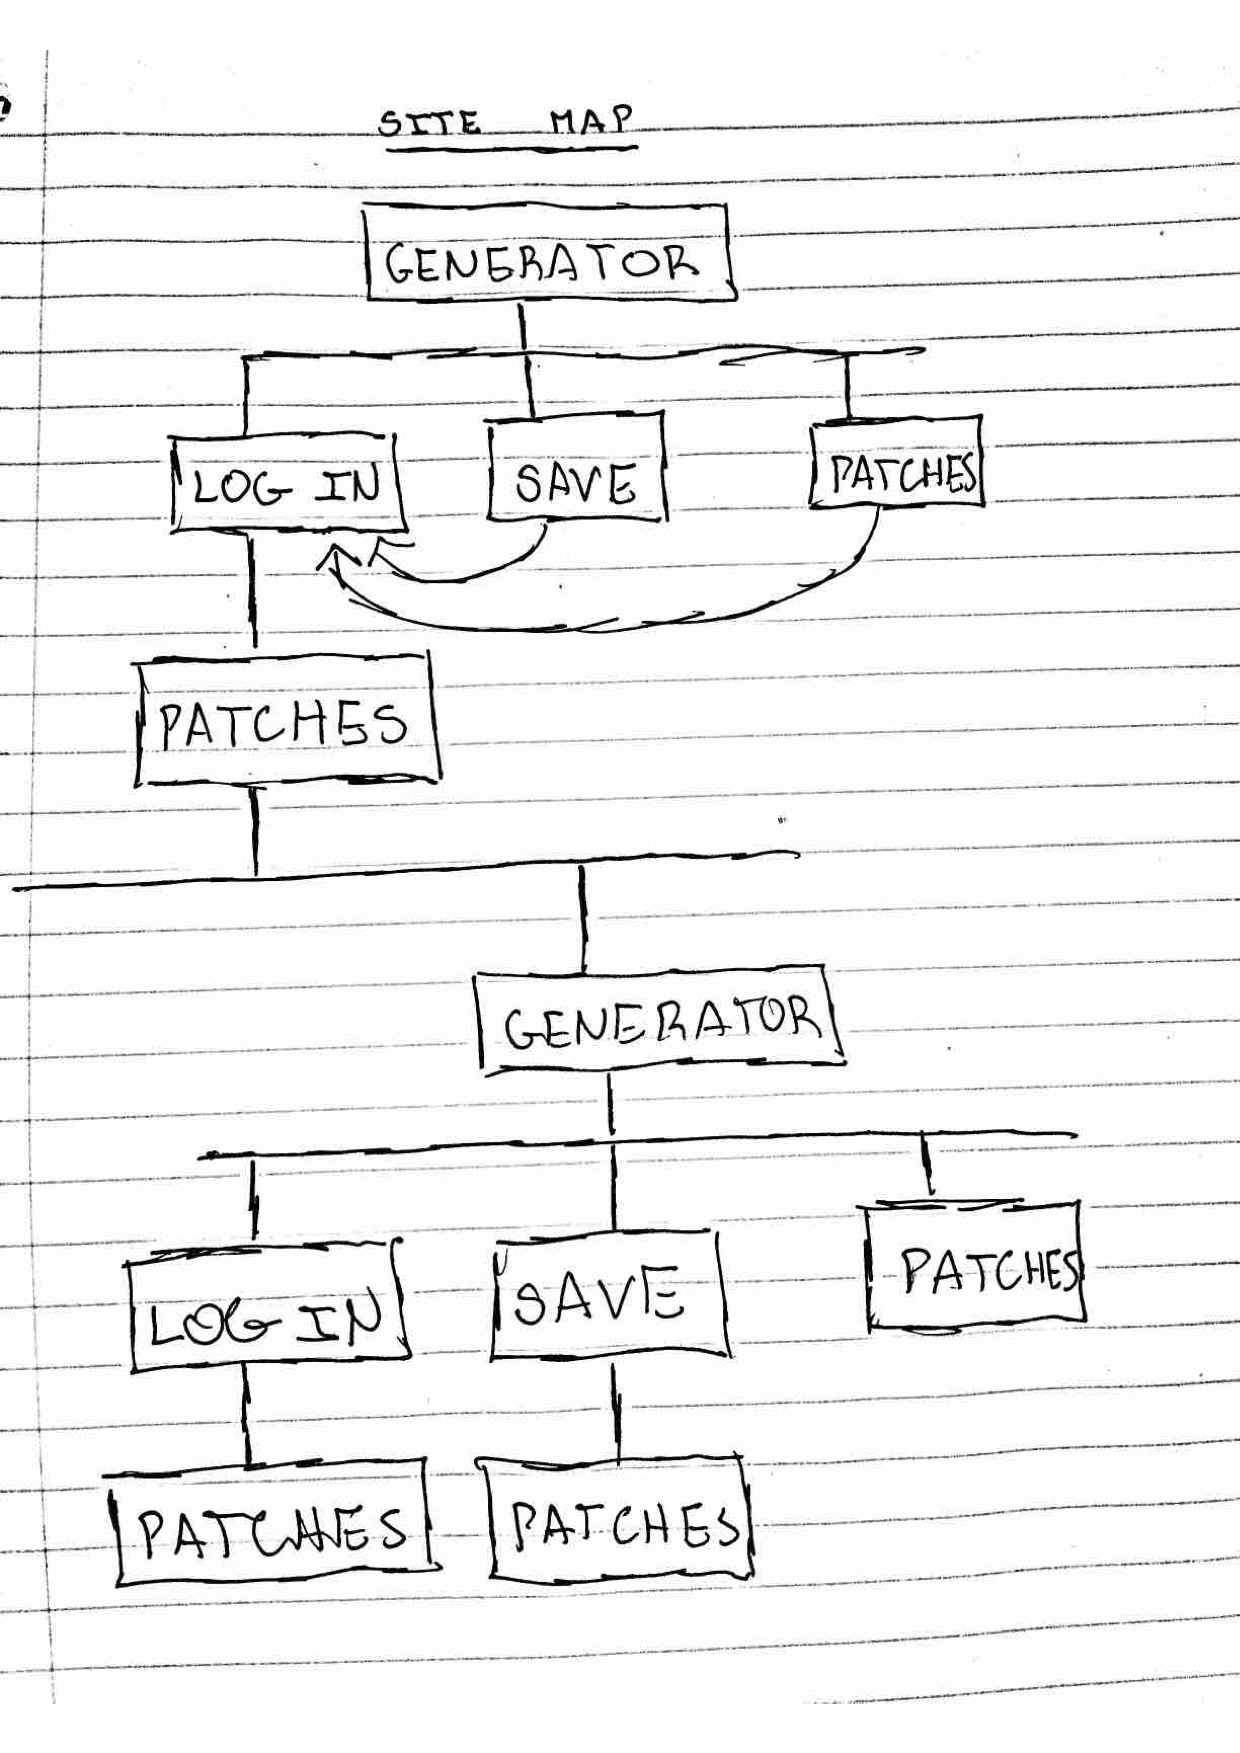 SITE MAP
GENERATOR
LOG IN SAVE PATCHES
PATCHES
GENERATOR
LOG IN SAVE PATCHES
PATCHES PATCHES